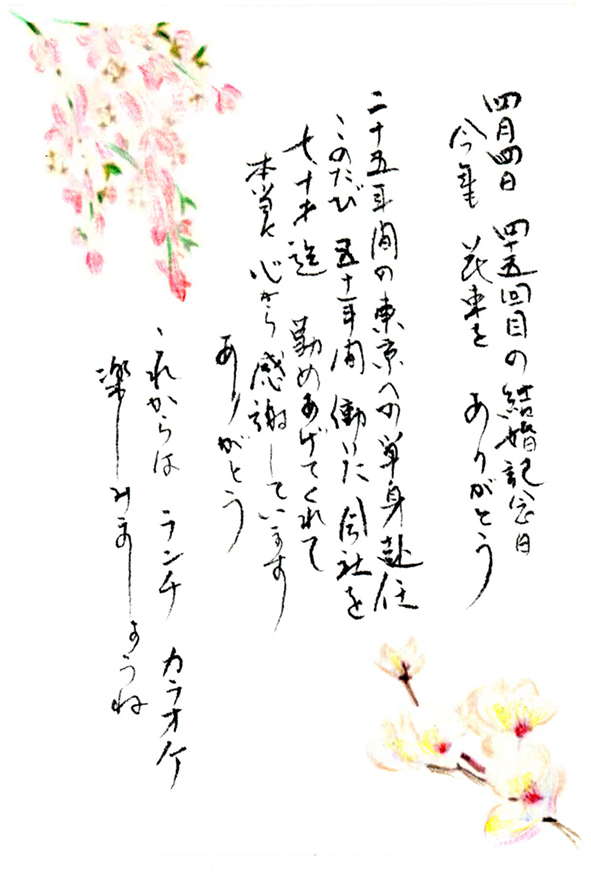 四月四日 四十五回目の結婚記念日
今年 花束を ありがとう
二十五年間の東京への単身赴任
このたび 五十一年間 働いた会社を
七十才迄 勤めあげてくれて
本当に心から感謝しています
ありがとう
これからは ランチ カラオケ
楽しみましょうね